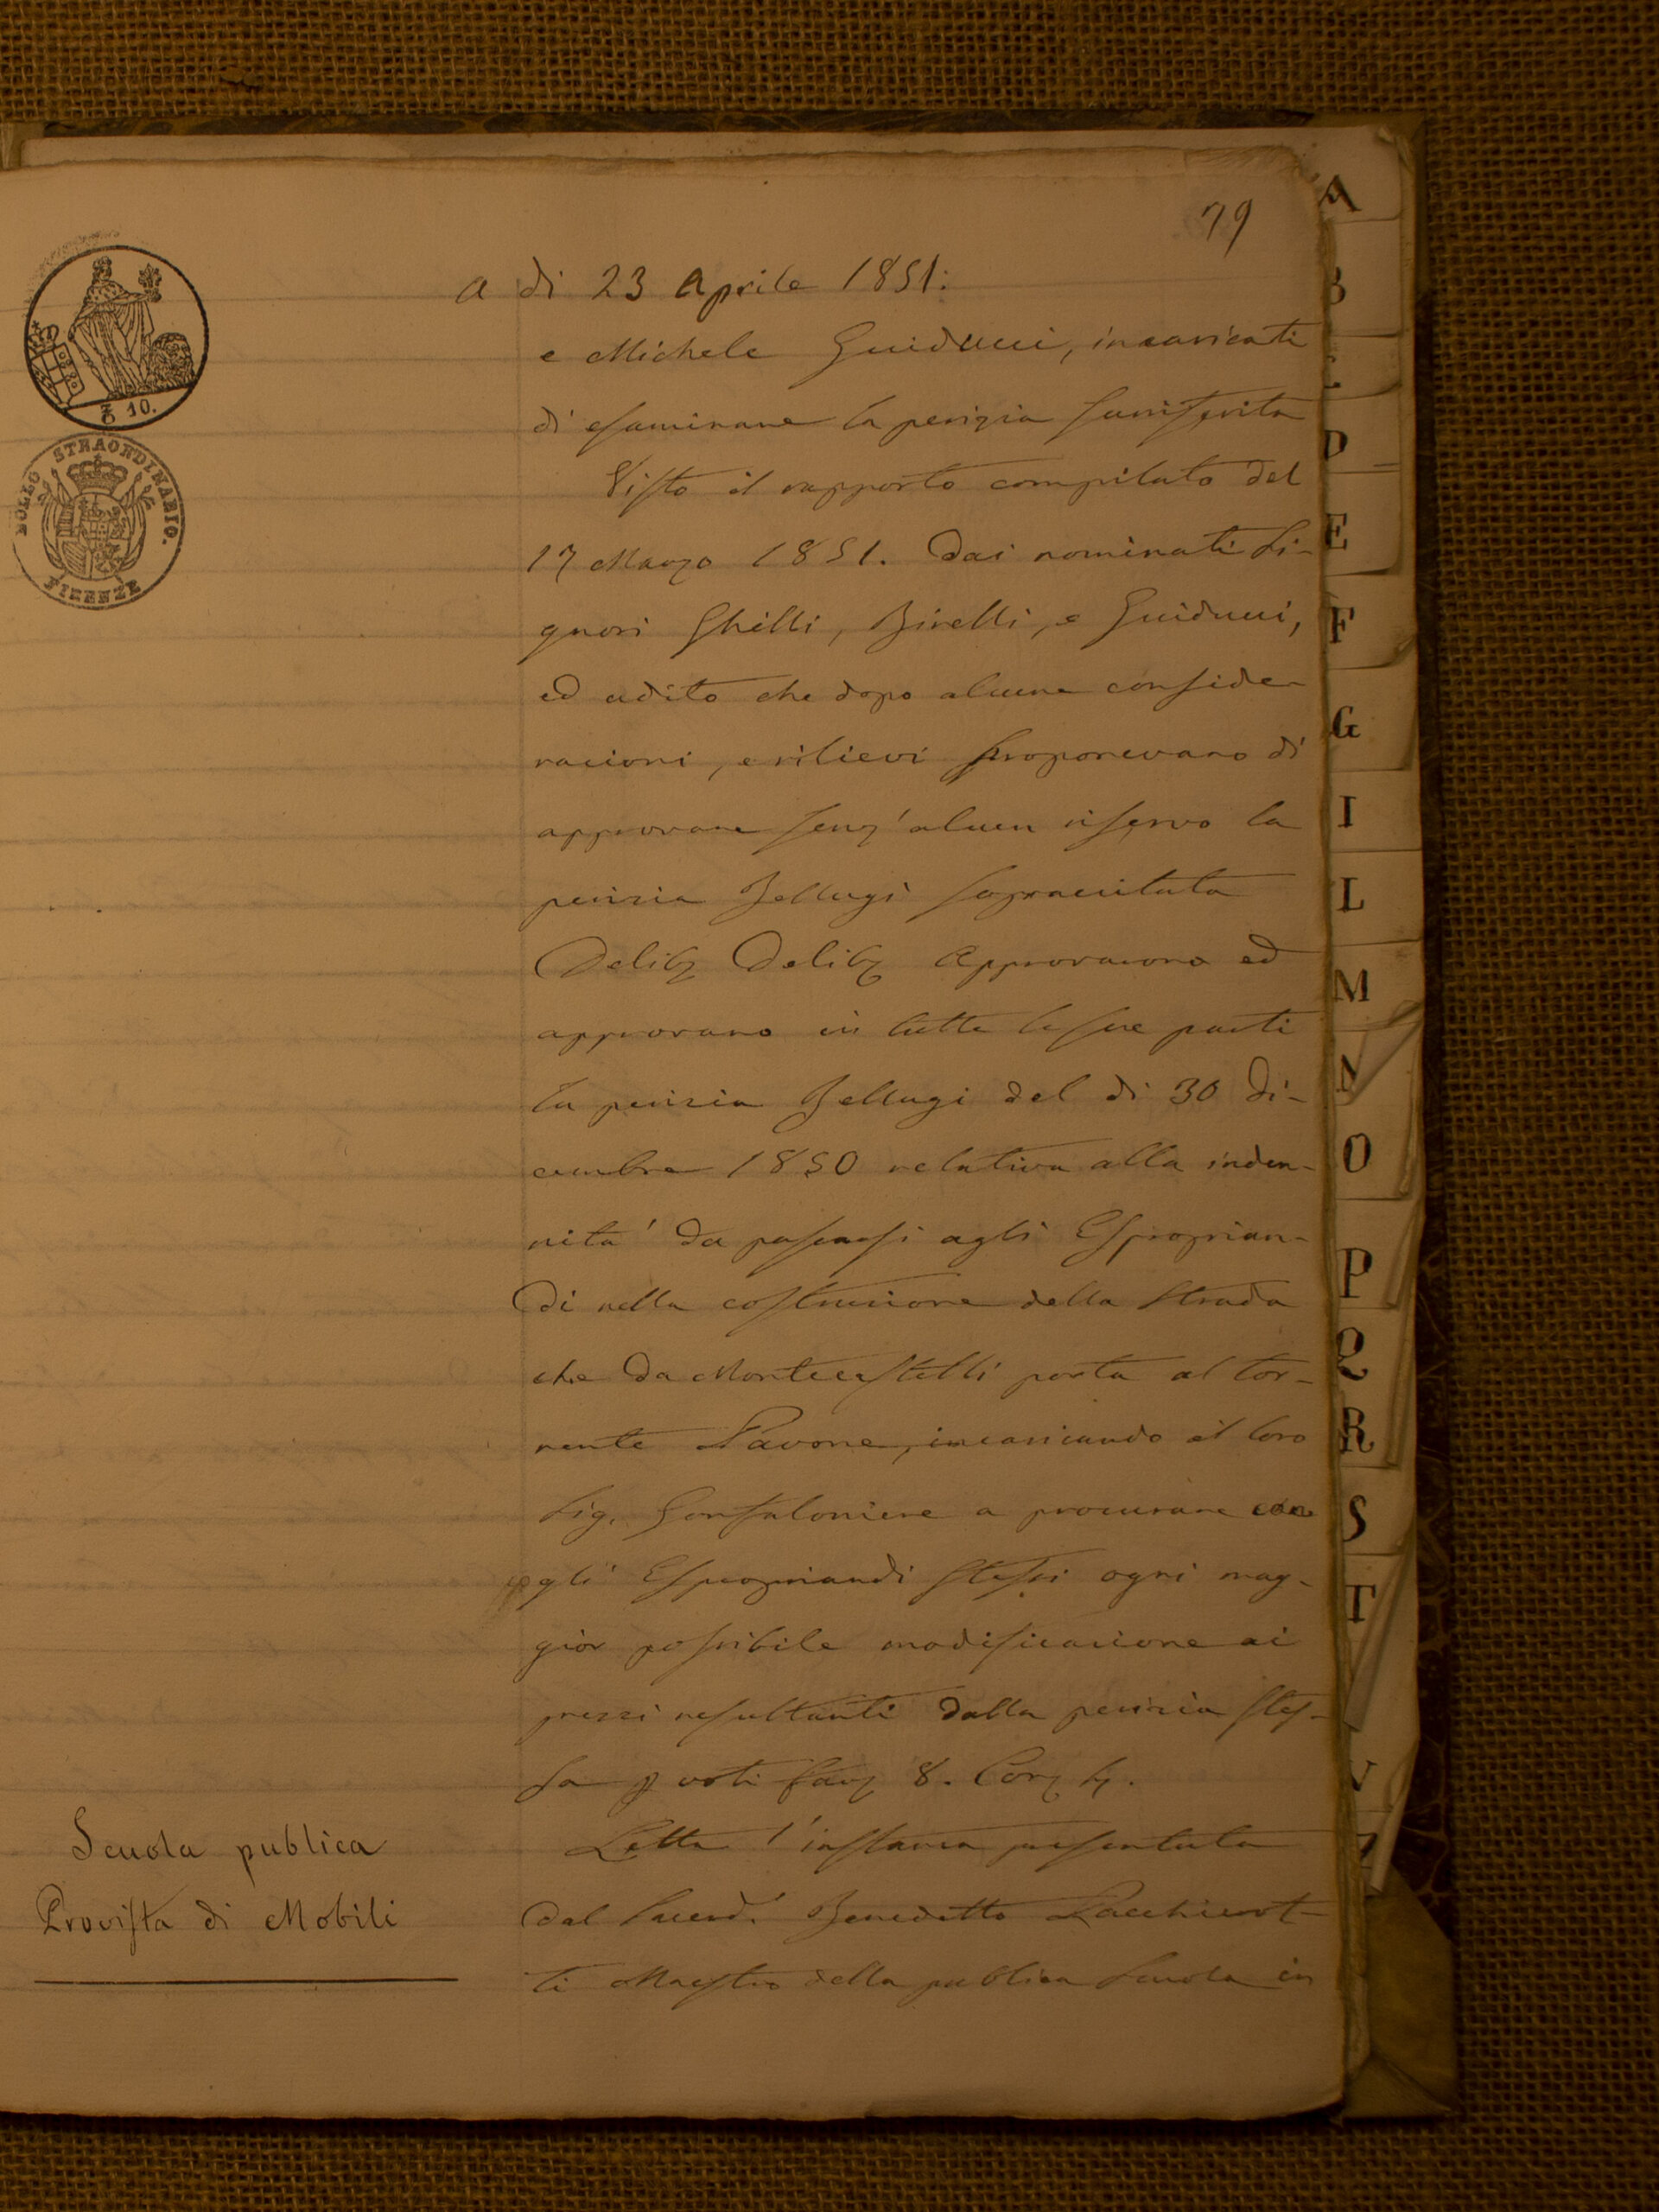 79
a di 23 Aprile 1851:
e Michele Guiducci, incaricati
di esaminare la perizia surriferita
Visto il rapporto compilato del
17 Marzo 1851. Dai nominati Si-
gnori Ghilli, Birelli, e Guiducci,
ed udito che dopo alcune conside
razioni, e rilievi proponevano di
approvare senz'alcun riservo la
perizia Bellugi sopracitata
Delibz Delibz Approvarono ed
approvano in tutte le sue parti
la perizia Bellugi del di 30 Di-
cembre 1850 relativa alla inden-
nita' da passarsi agli Esproprian-
di nella costruzione della Strada
che da Montecastelli porta al tor-
rente Pavone, incaricando il loro
Sig. Gonfaloniere a procurare con
gli Espropriandi stessi ogni mag-
gior possibile modificazione ai
prezzi resultanti dalla perizia stes-
sa p voti favz 8. Conz
Letta l'instanza presentata
Dal Sacerd. Benedetto
ti Maestro della publica Scuola in
Scuola publica
Provista di Mobili
10.
BOLLO STRAORDINARIO.
FIRENZE
A
B
C
D
E
F
G
I
L
M
N
O
P
Q
R
S
T
V
Z